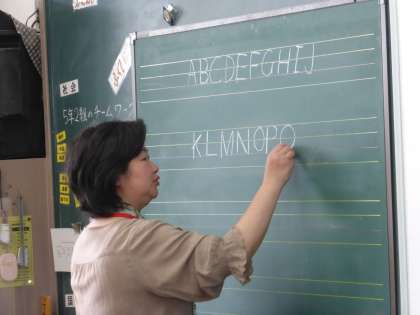 ABCDEFGHIJ
KLMNOPQ
社会
5年2組のチームワー